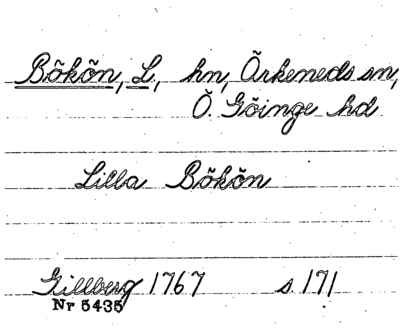 Bökön, L., hn, Örkeneds sn,
Ö. Göinge hd
Lilla Bökön
Gillberg 1767 s. 171
Nr 5435